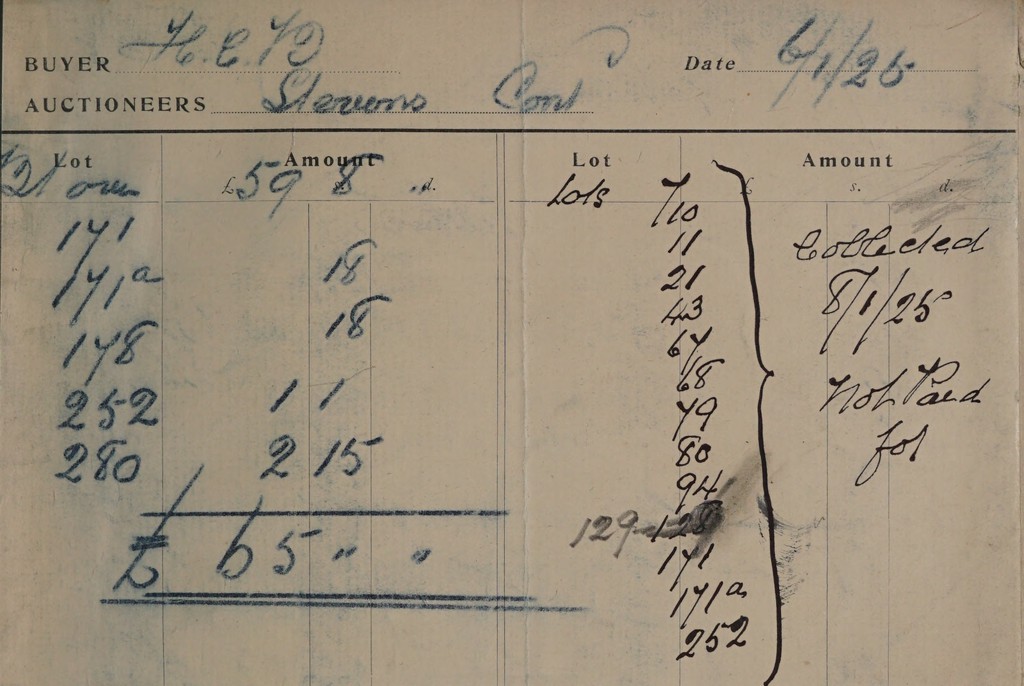 BUYER H.C.
Date 6/1/25
AUCTIONEERS Stevens Cont
Lot Amount
over £59 8 " d.
171
171a 18
178 18
252 1 1
280 2 15
£ 65 " "
Lot Amount
£ s. d.
Lots 7/10
11
21
43
67/68
79
80
94
129-128
171
171a
252
Collected
8/1/25
Not Paid
for